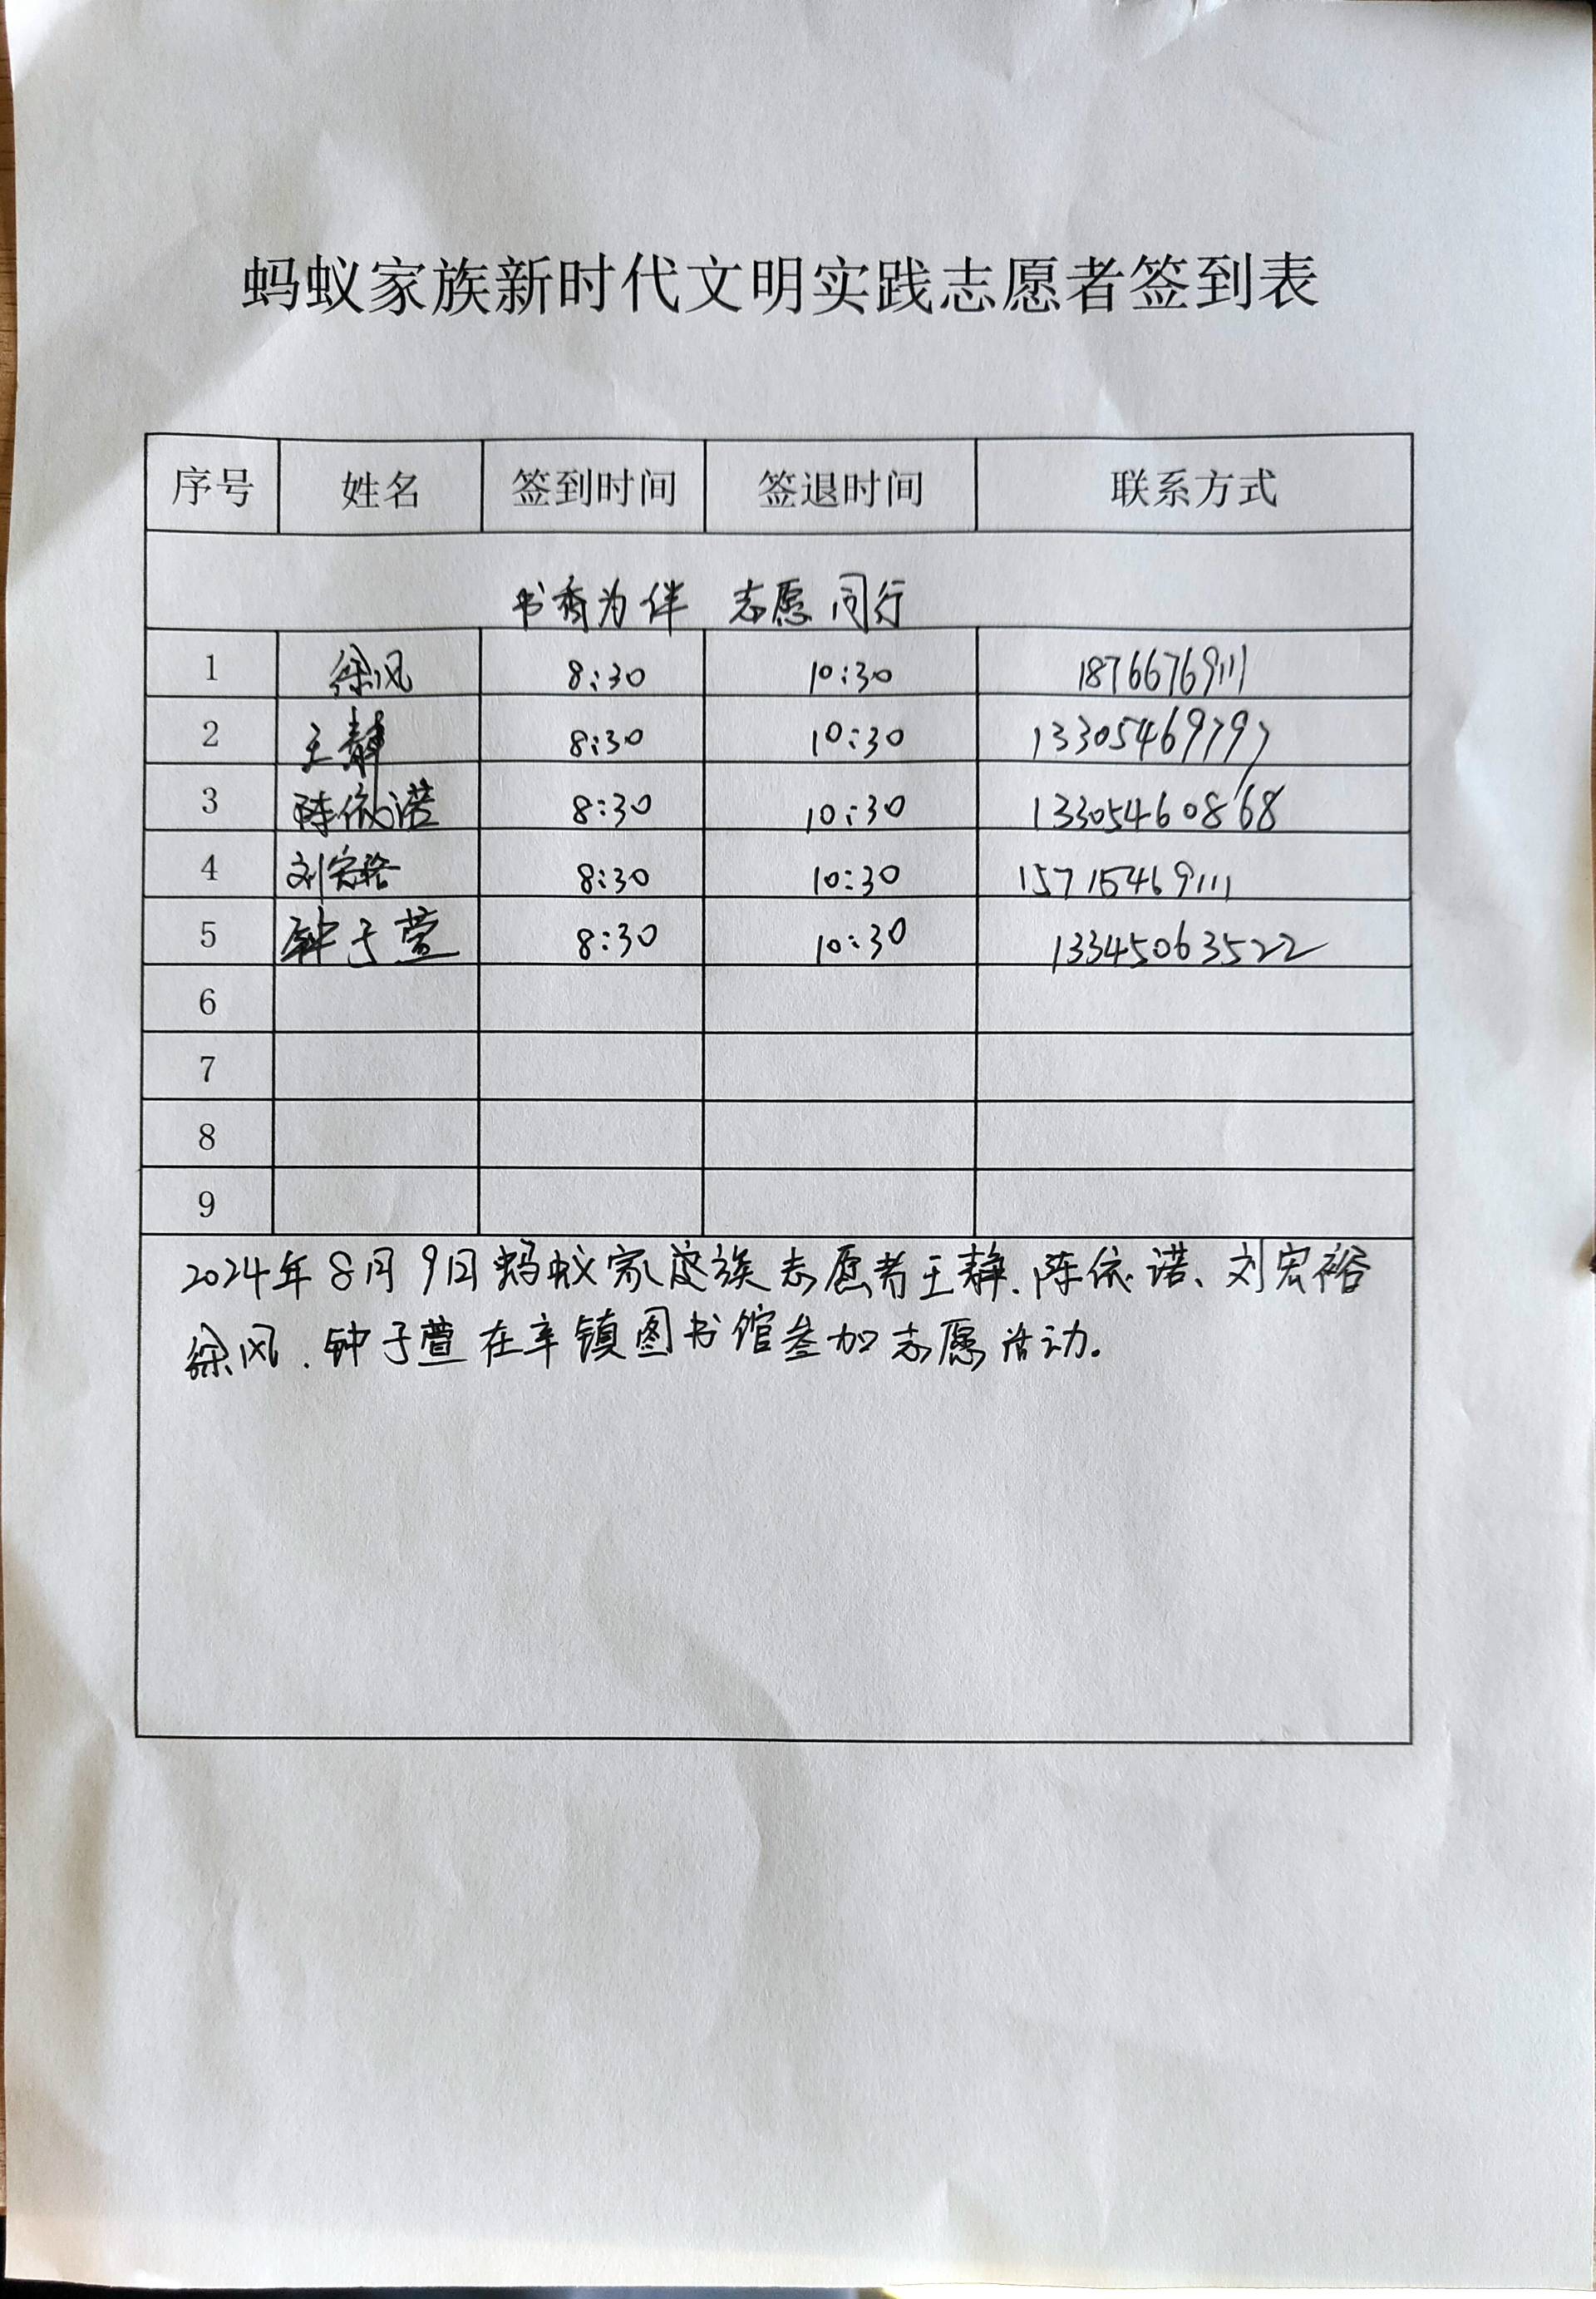 蚂蚁家族新时代文明实践志愿者签到表
序号 姓名 签到时间 签退时间 联系方式
书香为伴 志愿同行
1 徐风 8:30 10:30 18766769111
2 王静 8:30 10:30 13305469797
3 陈依诺 8:30 10:30 13305460868
4 刘宏裕 8:30 10:30 15715469111
5 钟子萱 8:30 10:30 13345063522
6
7
8
9
2024年8月9日蚂蚁家庭族志愿者王静.陈依诺、刘宏裕
徐风.钟子萱在辛镇图书馆参加志愿活动.